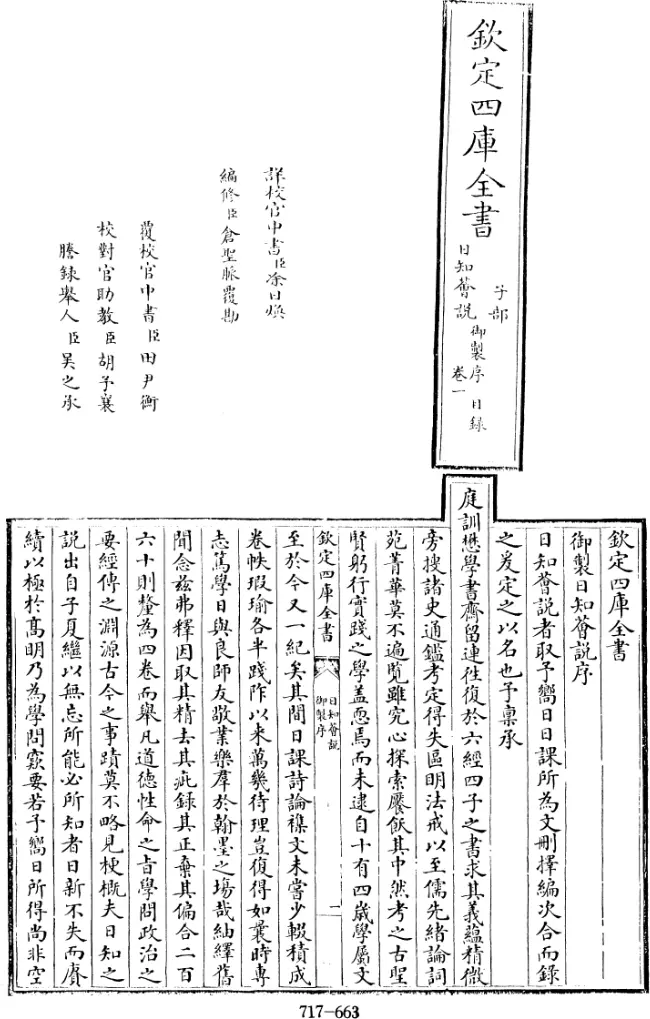 欽定四庫全書
子部
日知薈說
御製序 目錄
卷一
詳校官中書臣涂日煥
編修臣倉聖脈覆勘
覆校官中書臣田尹衡
校對官助教臣胡予襄
謄錄舉人臣吳之承
欽定四庫全書
御製日知薈說序
日知薈說者取予嚮日日課所為文刪擇編次合而錄
之爰定之以名也予稟承
庭訓懋學書齋留連往復於六經四子之書求其義蘊精微
旁搜諸史通鑑考定得失區明法戒以至儒先緒論詞
苑菁華莫不遍覽雖究心探索饜飫其中然考之古聖
賢躬行實踐之學盖恧焉而未逮自十有四歲學屬文
欽定四庫全書
日知薈說
御製序
一
至於今又一紀矣其間日課詩論襍文未嘗少輟積成
卷帙瑕瑜各半踐阼以來萬幾待理豈復得如曩時專
志篤學日與良師友敬業樂羣於翰墨之場哉紬繹舊
聞念茲弗釋因取其精去其疵錄其正棄其偏合二百
六十則釐為四卷而舉凡道德性命之旨學問政治之
要經傳之淵源古今之事蹟莫不略見梗概夫日知之
說出自子夏繼以無忘所能必所知者日新不失而賡
續以極於髙明乃為學問窾要若予嚮日所得尚非空
717-663